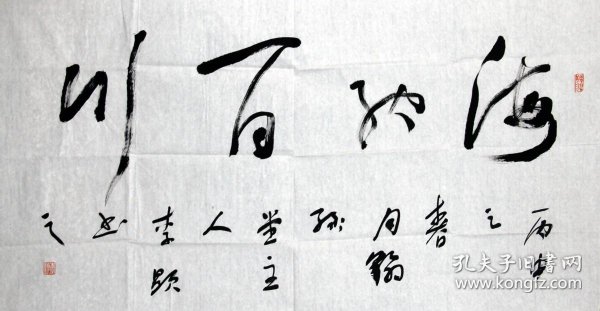 海纳百川
丙申
之
春
月翰
缘
堂主
人
李颢
书
之
孔夫子旧书网
www.kongfz.com